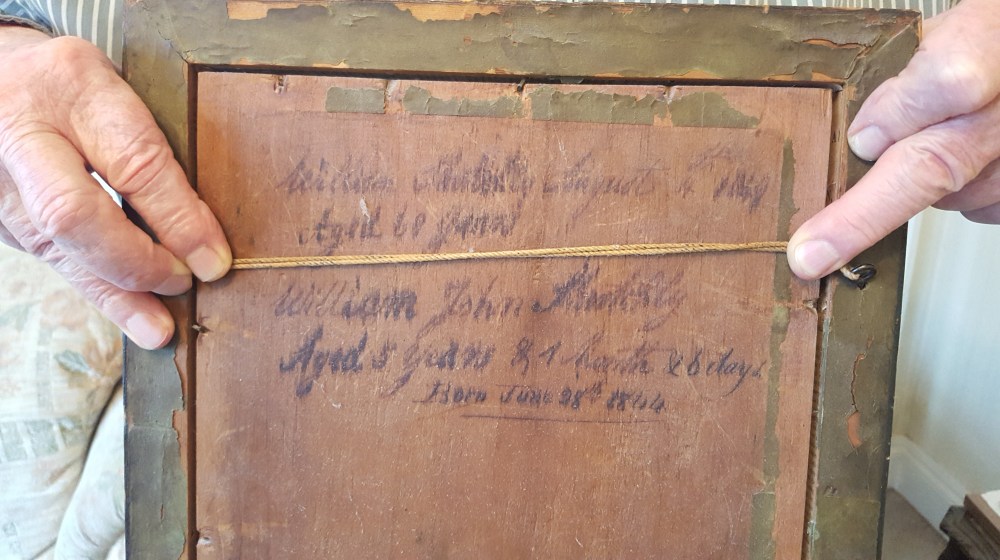 William August 1849
Aged years
William John
Aged 5 years & 1 Month & 8 days
Born June 28th 1844